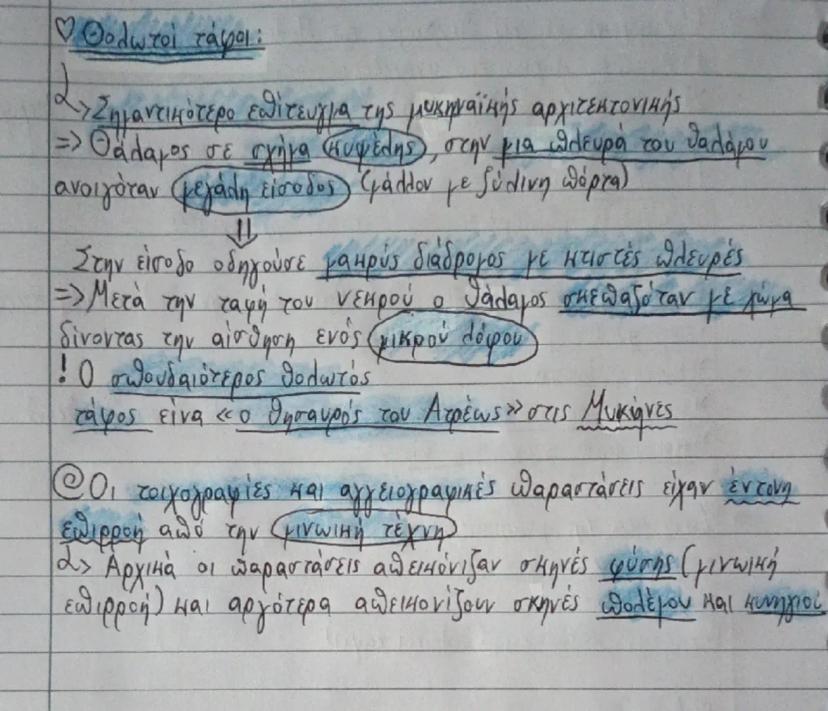 ♡ Θολωτοί τάφοι:
↳ Σημαντικότερο επίτευγμα της μυκηναϊκής αρχιτεκτονικής
=> Θάλαμος σε σχήμα κυψέλης, στην μια πλευρά του θαλάμου
ανοιγόταν μεγάλη είσοδος (μάλλον με ξύλινη πόρτα)
⇓
Στην είσοδο οδηγούσε μακρύς διάδρομος με κτιστές πλευρές
=> Μετά την ταφή του νεκρού ο θάλαμος σκεπαζόταν με χώμα
δίνοντας την αίσθηση ενός μικρού λόφου
! Ο σπουδαιότερος θολωτός
τάφος είνα «ο θησαυρός του Ατρέως» στις Μυκήνες
@ Οι τοιχογραφίες και αγγειογραφικές παραστάσεις είχαν έντονη
επιρροή από την μινωική τέχνη
↳ Αρχικά οι παραστάσεις απεικόνιζαν σκηνές φύσης (μινωική
επιρροή) και αργότερα απεικονίζουν σκηνές πολέμου και κυνηγιού